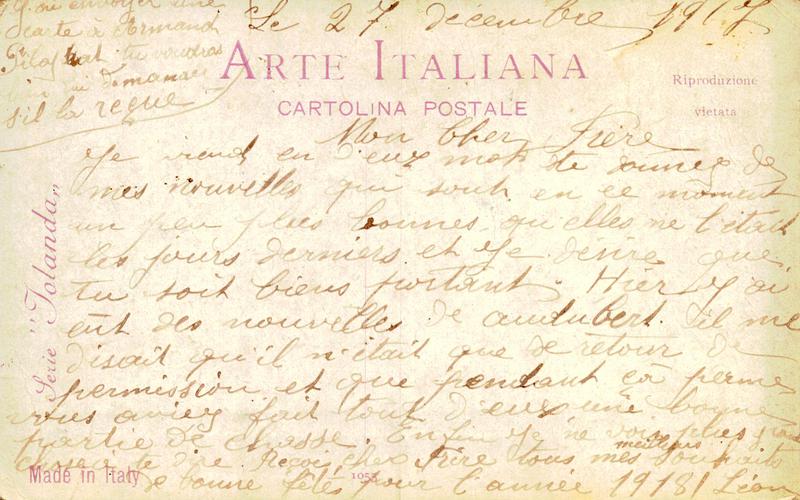 J'ai envoyer une
carte a Armand
tu voudras
lui demander
s'il la reçue
Le 27 décembre 1917
ARTE ITALIANA
CARTOLINA POSTALE
Riproduzione
vietata
Serie "Jolanda"
Mon Cher Frère
Je viend en d'eux mot te donner de
mes nouvelles qui sont en ce moment
un peu plus bonnes qu'elles ne l'était
les jours derniers et je désire que
tu soit biens portant. Hier j'ai
eut des nouvelles de audubert. il me
disait qu'il n'était que de retour de
permission et que pendant ça perme
vous aviez fait tout d'eux une bonne
partie de chasse. Enfin je ne vois plus
chose a te dire Reçois cher Frère tous mes meilleurs souhaits
de bonne fêtes pour l'année 1918! Léon
Made in Italy
1053